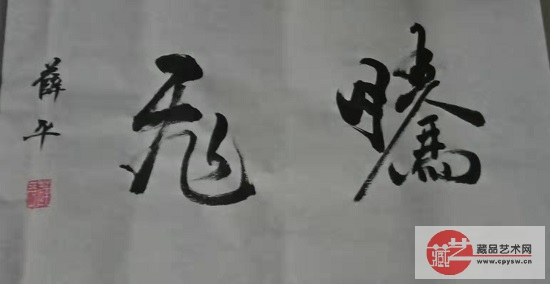 騰飛
薛平
藏艺
藏品艺术网
www.cpysw.cn